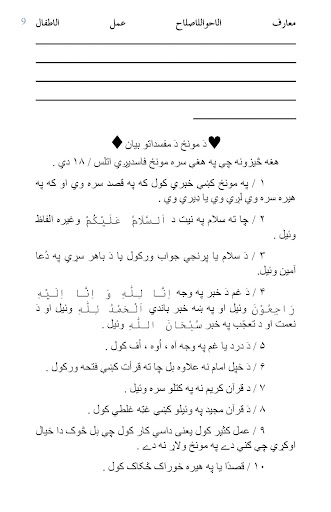 معارف الاحوال‌لاصلاح عمل الاطفال 9
♥ دَ مونځ دَ مفسداتو بیان ♦
هغه څیزونه چې په هغې سره مونځ فاسدیږي اتلس / ۱۸ دي .
۱ / په مونځ کښې خبرې کول که په قصد سره وي او که په
هیره سره وي لږې وي یا ډیرې وي .
۲ / چا ته سلام په نیت دَ اَلسَّلَامُ عَلَیْکُمْ وغیره الفاظ
وئیل .
۳ / دَ سلام یا پرنجي جواب ورکول یا دَ باهر سړي په دُعا
آمین وئیل.
۴ / دَ غم دَ خبر په وجه اِنَّا لِلّٰهِ وَ اِنَّا اِلَیْهِ
رَاجِعُوْنَ وئیل او په ښه خبر باندې اَلْحَمْدُ لِلّٰهِ وئیل او دَ
نعمت او د تعجّب په خبر سُبْحَانَ اللّٰهِ وئیل .
۵ / دَ درد یا غم په وجه اه ، اُوه ، اُف کول .
۶ / دَ خپل امام نه علاوه بل چا ته قرأت کښې فتحه ورکول .
۷ / دَ قرآن کریم نه په کتلو سره وئیل .
۸ / دَ قرآن مجید په وئیلو کښې غټه غلطي کول .
۹ / عمل کثیر کول یعنی داسې کار کول چې بل څوک دا خیال
اوکړي چې ګنې دے په مونځ ولاړ نه دے .
۱۰ / قصدًا یا په هیره خوراک څکاک کول .